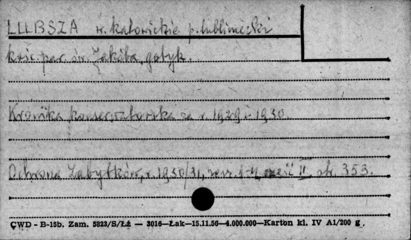 LUBSZA w. katowickie p. lubliniecki
kość. par. św. Jakóba, gotyk.
Kronika konserwatorska za r. 1929 i 1930.
Ochrona Zabytków, r. 1930/31, część II, str. 353.
ÇWD - B-15b. Zam. 5823/S/Łż — 3016—Łak—15.11.56—4.000.000—Karton kl. IV A1/200 g.